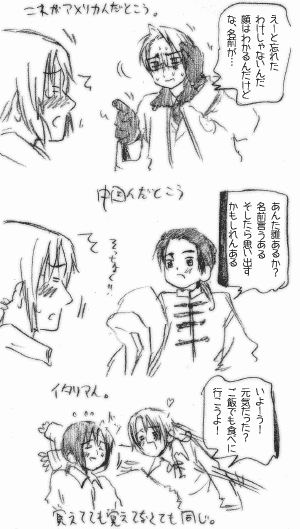 これがアメリカ人だとこう。
えーと忘れた
わけじゃないんだ
顔はわかるんだけど
な、名前が…
中国人だとこう
あんた誰あるか?
名前言うある
そしたら思い出す
かもしれんある
イタリア人。
いよーう!
元気だった?
ご飯でも食べに
行こうよ!
覚えてても覚えてなくても同じ。